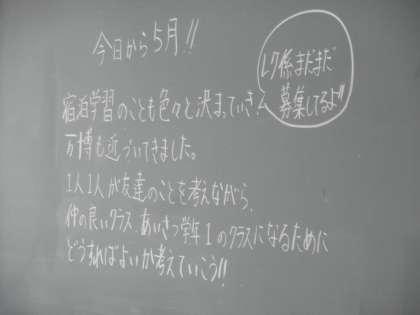 今日から5月!!
レク係まだまだ
募集してるよ!!
宿泊学習のことも色々と決まっていき、
万博も近づいてきました。
1人1人が友達のことを考えながら、
仲の良いクラス、あいさつ学年1のクラスになるために
どうすればよいか考えていこう!!